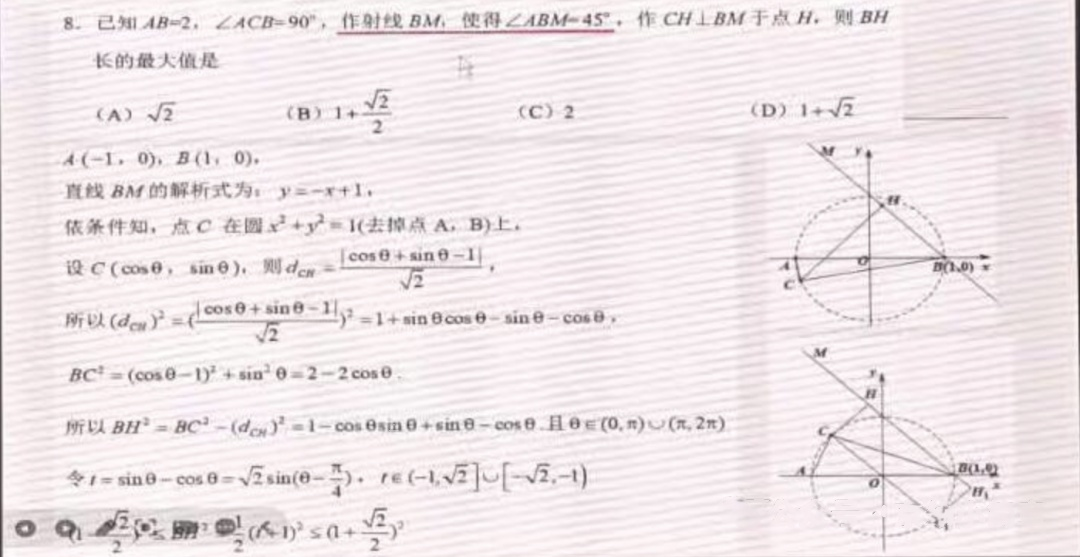 8. 已知 AB=2，∠ACB=90°，作射线 BM，使得∠ABM=45°，作 CH⊥BM 于点 H，则 BH
长的最大值是
(A) √2 (B) 1+√2/2 (C) 2 (D) 1+√2
A(-1，0)，B(1，0)，
直线 BM 的解析式为：y=-x+1，
依条件知，点 C 在圆 x²+y²=1(去掉点 A，B)上，
设 C(cosθ，sinθ)，则 d_CH=|cosθ+sinθ-1|/√2，
所以 (d_CH)²=(|cosθ+sinθ-1|/√2)²=1+sinθcosθ-sinθ-cosθ，
BC²=(cosθ-1)²+sin²θ=2-2cosθ.
所以 BH²=BC²-(d_CH)²=1-cosθsinθ+sinθ-cosθ.且θ∈(0,π)∪(π,2π)
令 t=sinθ-cosθ=√2sin(θ-π/4)，t∈(-1,√2]∪[-√2,-1)
√2/2 BH² 1/2(t+1)²≤(1+√2/2)²
M y
H
A O B(1,0) x
C
M
y
H
C
A O B(1,0) x
H₁
C₁